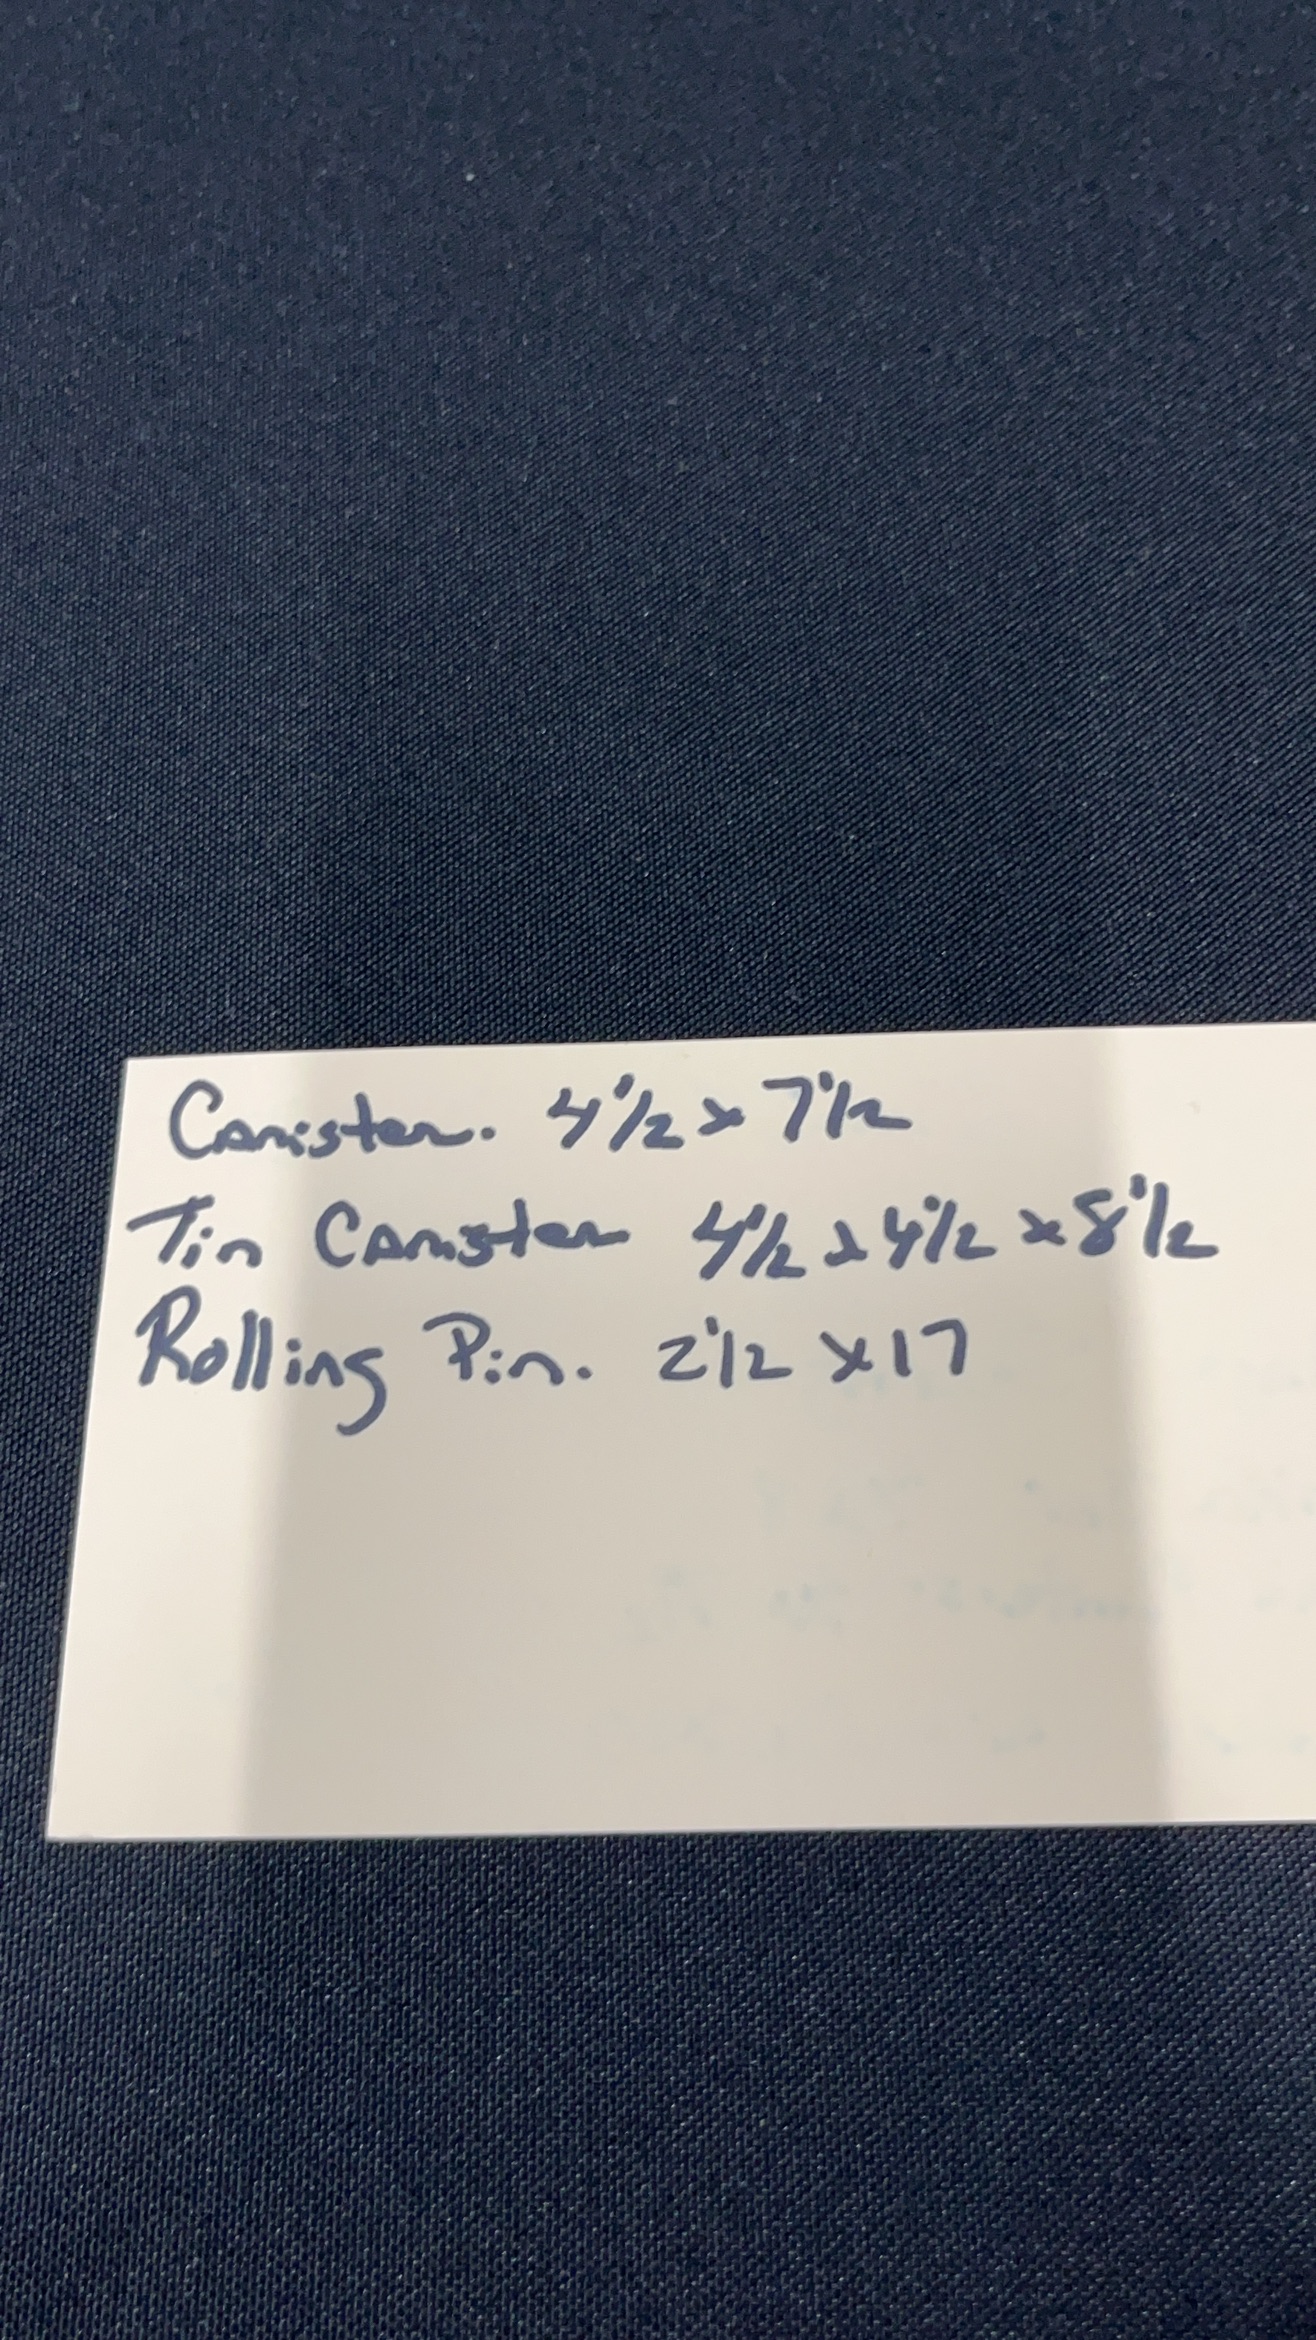 Canister. 4 1/2 x 7 1/2
Tin Canister 4 1/2 x 4 1/2 x 8 1/2
Rolling Pin. 2 1/2 x 17